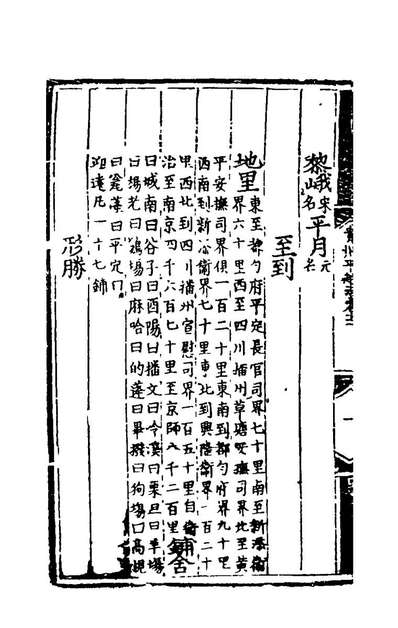 黎峨宋名平月元名
至到
地里東至都勻府平定長官司界七十里南至新添衛
界六十里西至四川播州草塘安撫司界北至黃
平安撫司界俱一百二十里東南到都勻府界九十里
西南到新添衛界七十里東北到興隆衛界一百二十
里西北到四川播州宣慰司界一百五十里自衛
治至南京四千六百七十里至京師八千二百里鋪舍
曰城南曰谷子曰酉陽曰播文曰令溪曰栗旦曰羊場
曰場老曰鷄場曰麻哈曰的蓬曰畢撥曰狗場曰高槐
曰龕溪曰平定曰
迎遠凡一十七鋪
形勝